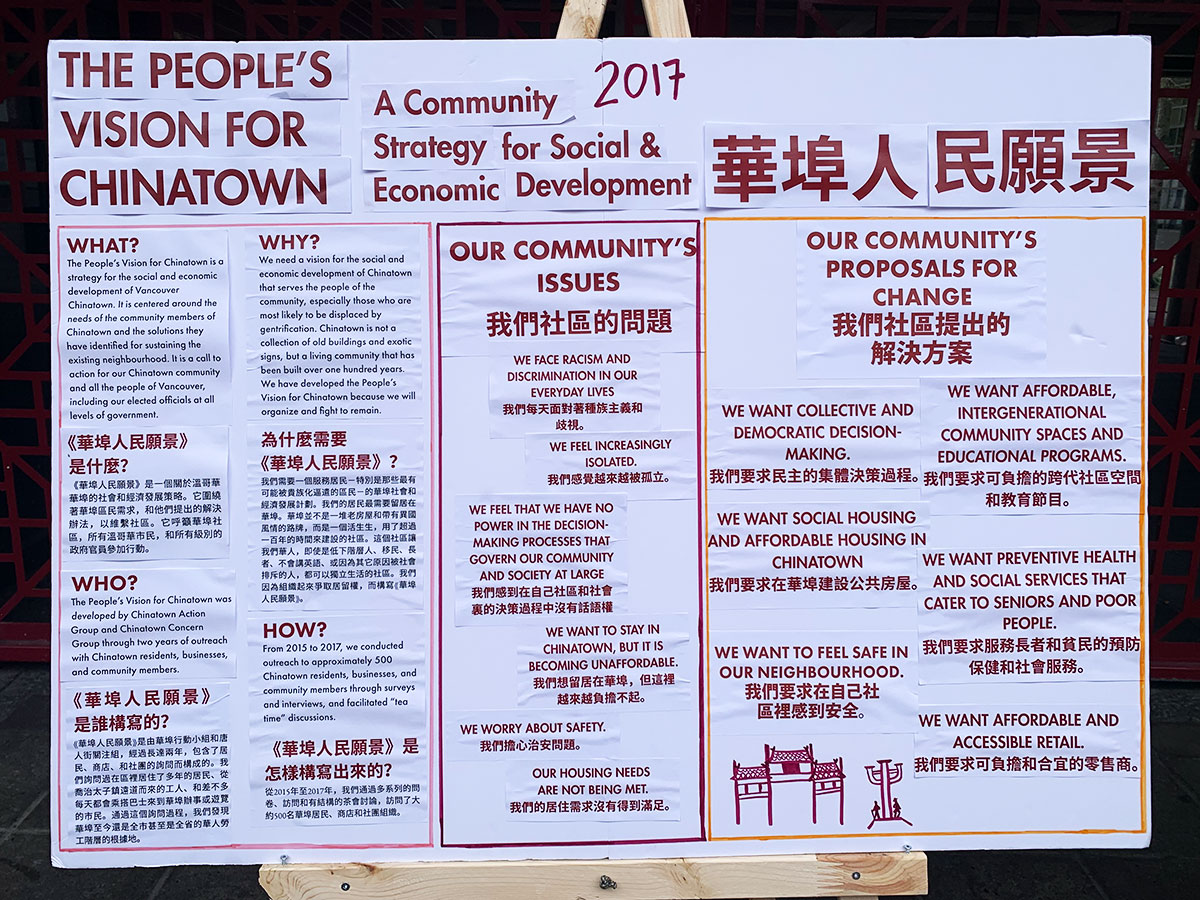 THE PEOPLE'S
VISION FOR
CHINATOWN
A Community
Strategy for Social &
Economic Development
2017
華埠人民願景
WHAT?
The People's Vision for Chinatown is a
strategy for the social and economic
development of Vancouver
Chinatown. It is centered around the
needs of the community members of
Chinatown and the solutions they
have identified for sustaining the
existing neighbourhood. It is a call to
action for our Chinatown community
and all the people of Vancouver,
including our elected officials at all
levels of government.
《華埠人民願景》
是什麼?
《華埠人民願景》是一個關於溫哥華
華埠的社會和經濟發展策略。它圍繞
著華埠區民需求,和他們提出的解決
辦法,以維繫社區。它呼籲華埠社
區,所有溫哥華市民,和所有級別的
政府官員參加行動。
WHO?
The People's Vision for Chinatown was
developed by Chinatown Action
Group and Chinatown Concern
Group through two years of outreach
with Chinatown residents, businesses,
and community members.
《華埠人民願景》
是誰構寫的?
《華埠人民願景》是由華埠行動小組和唐
人街關注組,經過長達兩年,包含了居
民、商店、和社團的詢問而構成的。我
們詢問過在區裡居住了多年的居民、從
喬治太子鎮遠道而來的工人、和差不多
每天都會乘搭巴士來到華埠辦事或遊覽
的市民。通過這個詢問過程,我們發現
華埠至今還是全市甚至是全省的華人勞
工階層的根據地。
WHY?
We need a vision for the social and
economic development of Chinatown
that serves the people of the
community, especially those who are
most likely to be displaced by
gentrification. Chinatown is not a
collection of old buildings and exotic
signs, but a living community that has
been built over one hundred years.
We have developed the People's
Vision for Chinatown because we will
organize and fight to remain.
為什麼需要
《華埠人民願景》?
我們需要一個服務居民－特別是那些最有
可能被貴族化逼遷的區民－的華埠社會和
經濟發展計劃。我們的居民最需要留居在
華埠。華埠並不是一堆老房屋和帶有異國
風情的路牌,而是一個活生生,用了超過
一百年的時間來建設的社區。這個社區讓
我們華人,即使是低下階層人、移民、長
者、不會講英語、或因為其它原因被社會
排斥的人,都可以獨立生活的社區。我們
因為組織起來爭取居留權,而構寫《華埠
人民願景》。
HOW?
From 2015 to 2017, we conducted
outreach to approximately 500
Chinatown residents, businesses, and
community members through surveys
and interviews, and facilitated "tea
time" discussions.
《華埠人民願景》是
怎樣構寫出來的?
從2015年至2017年,我們通過多系列的問
卷、訪問和有結構的茶會討論,訪問了大
約500名華埠居民、商店和社團組織。
OUR COMMUNITY'S
ISSUES
我們社區的問題
WE FACE RACISM AND
DISCRIMINATION IN OUR
EVERYDAY LIVES
我們每天面對著種族主義和
歧視。
WE FEEL INCREASINGLY
ISOLATED.
我們感覺越來越被孤立。
WE FEEL THAT WE HAVE NO
POWER IN THE DECISION-
MAKING PROCESSES THAT
GOVERN OUR COMMUNITY
AND SOCIETY AT LARGE
我們感到在自己社區和社會
裏的決策過程中沒有話語權
WE WANT TO STAY IN
CHINATOWN, BUT IT IS
BECOMING UNAFFORDABLE.
我們想留居在華埠,但這裡
越來越負擔不起。
WE WORRY ABOUT SAFETY.
我們擔心治安問題。
OUR HOUSING NEEDS
ARE NOT BEING MET.
我們的居住需求沒有得到滿足。
OUR COMMUNITY'S
PROPOSALS FOR
CHANGE
我們社區提出的
解決方案
WE WANT COLLECTIVE AND
DEMOCRATIC DECISION-
MAKING.
我們要求民主的集體決策過程。
WE WANT SOCIAL HOUSING
AND AFFORDABLE HOUSING IN
CHINATOWN
我們要求在華埠建設公共房屋。
WE WANT TO FEEL SAFE IN
OUR NEIGHBOURHOOD.
我們要求在自己社
區裡感到安全。
WE WANT AFFORDABLE,
INTERGENERATIONAL
COMMUNITY SPACES AND
EDUCATIONAL PROGRAMS.
我們要求可負擔的跨代社區空間
和教育節目。
WE WANT PREVENTIVE HEALTH
AND SOCIAL SERVICES THAT
CATER TO SENIORS AND POOR
PEOPLE.
我們要求服務長者和貧民的預防
保健和社會服務。
WE WANT AFFORDABLE AND
ACCESSIBLE RETAIL.
我們要求可負擔和合宜的零售商。